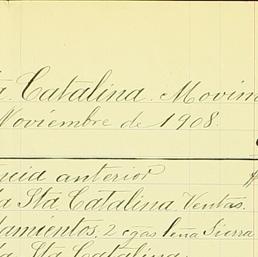 a. Catalina. Movim
Noviembre de 1908.
ncia anterior $
la Sta. Catalina Ventas.
damientos. 2 cgas leña Sierra
la Sta Catalina.